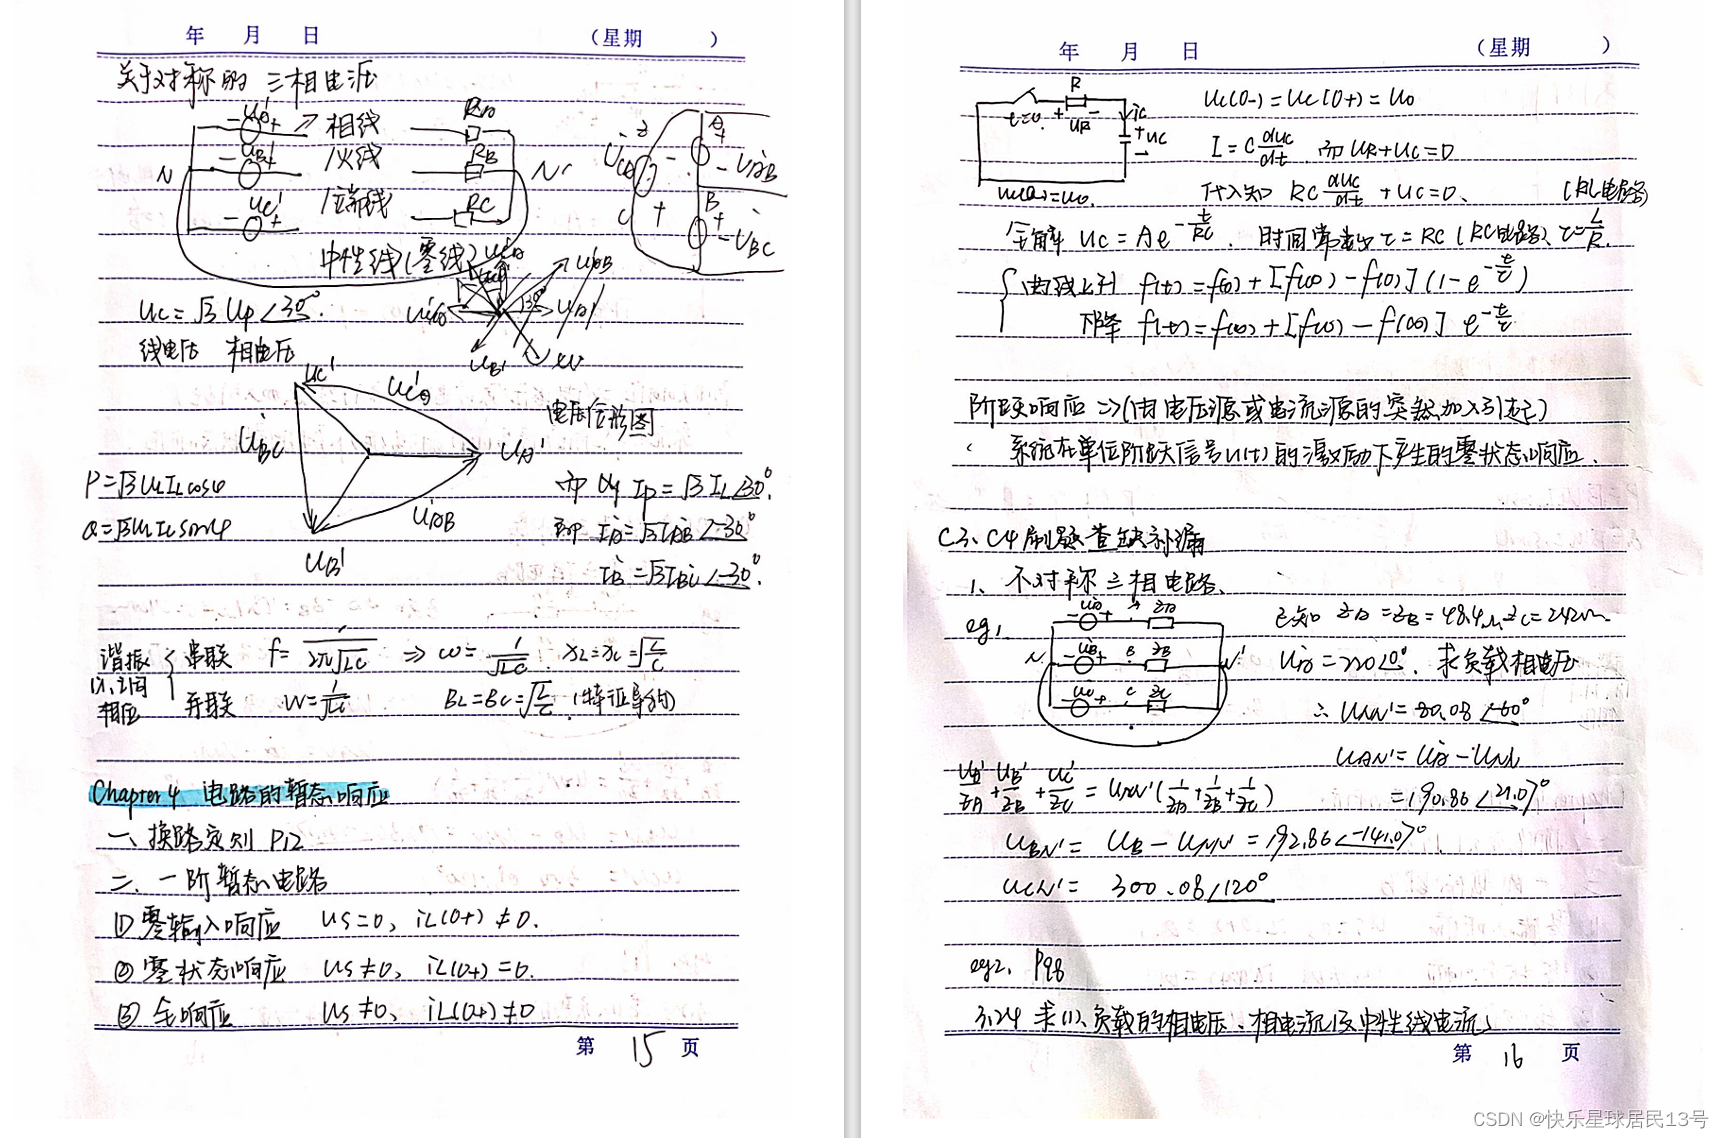 年 月 日 (星期 )
关于对称的 三相电源
相线
/火线
/端线
中性线(零线)
N
N'
RA
RB
RC
UC = √3 UP ∠30°
线电压 相电压
电压位形图
P=√3 ULIL cosφ
Q=√3 ULIL sinφ
IP = √3 IL ∠30°.
即 IA = √3 IAB ∠-30°
IB = √3 IBC ∠-30°.
谐振 串联 f = 1/2π√LC ⇒ ω = 1/√LC . XL=XC=√L/C
相位 并联 W = 1/√LC BL=BC=√L/C (特征导纳)
Chapter 4 电路的暂态响应
一、换路定则 P12
二、一阶暂态电路
① 零输入响应 US=0, iL(0+) ≠0.
② 零状态响应 US≠0, iL(0+) =0.
③ 全响应 US≠0, iL(0+) ≠0
第 15 页
年 月 日 (星期 )
UC(0-) = UC(0+) = U0
t=0
R
UR
iC
UC
I = C dUC/dt 而 UR+UC=0
UC(0-)=U0.
代入知 RC dUC/dt + UC=0.
全解 UC = A e^-t/RC . 时间常数 τ = RC (RC电路)、τ=L/R.
曲线上升 f(t) = f(0) + [f(∞) - f(0)] (1-e^-t/τ)
下降 f(t) = f(∞) + [f(0) - f(∞)] e^-t/τ
阶跃响应 => (由电压源或电流源的突然加入引起)
系统在单位阶跃信号u(t)的激励下产生的零状态响应.
C3、C4刷题查缺补漏
1、不对称三相电路.
eg1
已知 ZA = ZB = 48.4Ω, ZC = 242Ω
UA = 220∠0°. 求负载相电压
∴ UNN' = 80.08 ∠60°
UAN' = UA - UNN'
= 190.86 ∠21.07°
UA/ZA + UB/ZB + UC/ZC = UNN' (1/ZA + 1/ZB + 1/ZC)
UBN' = UB - UNN' = 192.86 ∠-141.07°
UCN' = 300.08 ∠120°
eg2. P98
3.24 求(1)、负载的相电压、相电流及中性线电流
第 16 页
CSDN @快乐星球居民13号